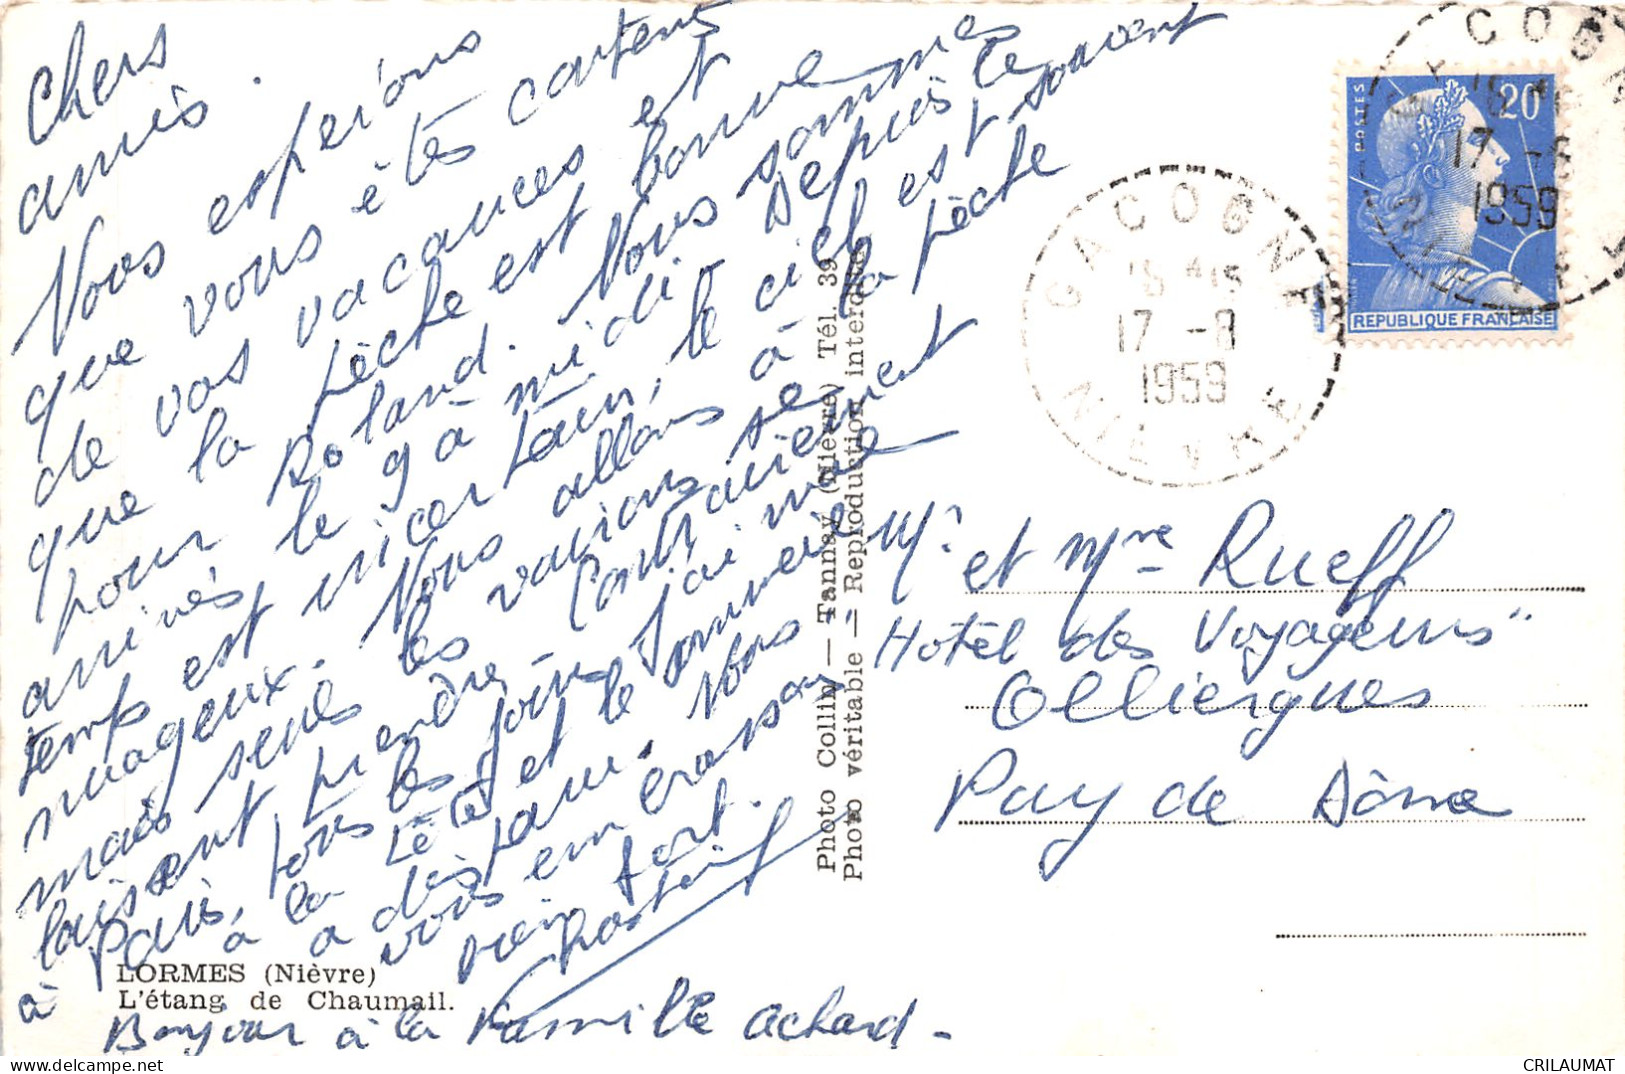 Chers
amis.
Nous espérons
que vous êtes contents
de vos vacances et
que la pêche est bonne
pour Roland. Nous sommes
arrivés le 9 à midi. Depuis le
temps est incertain, le ciel est souvent
nuageux. Nous allons à la pêche
mais seuls les vairons se
laissent prendre. Contrairement
à Paris, tous les jours j'ai mal
à la tête et le sommeil
a disparu. Nous
vous embrassons
bien fort.
Bonjour à la famille Achard -
LORMES (Nièvre)
L'étang de Chaumail.
Photo Collin — Tannay (Nièvre) Tél. 39
Photo véritable — Reproduction interdite
POSTES
20
REPUBLIQUE FRANÇAISE
GACOGNE
18 H 15
17 -8
1959
NIÈVRE
GACOGNE
17 -8
1959
Mr et Mme Rueff
Hôtel des Voyageurs"
Olliergues
Puy de Dôme
CRILAUMAT